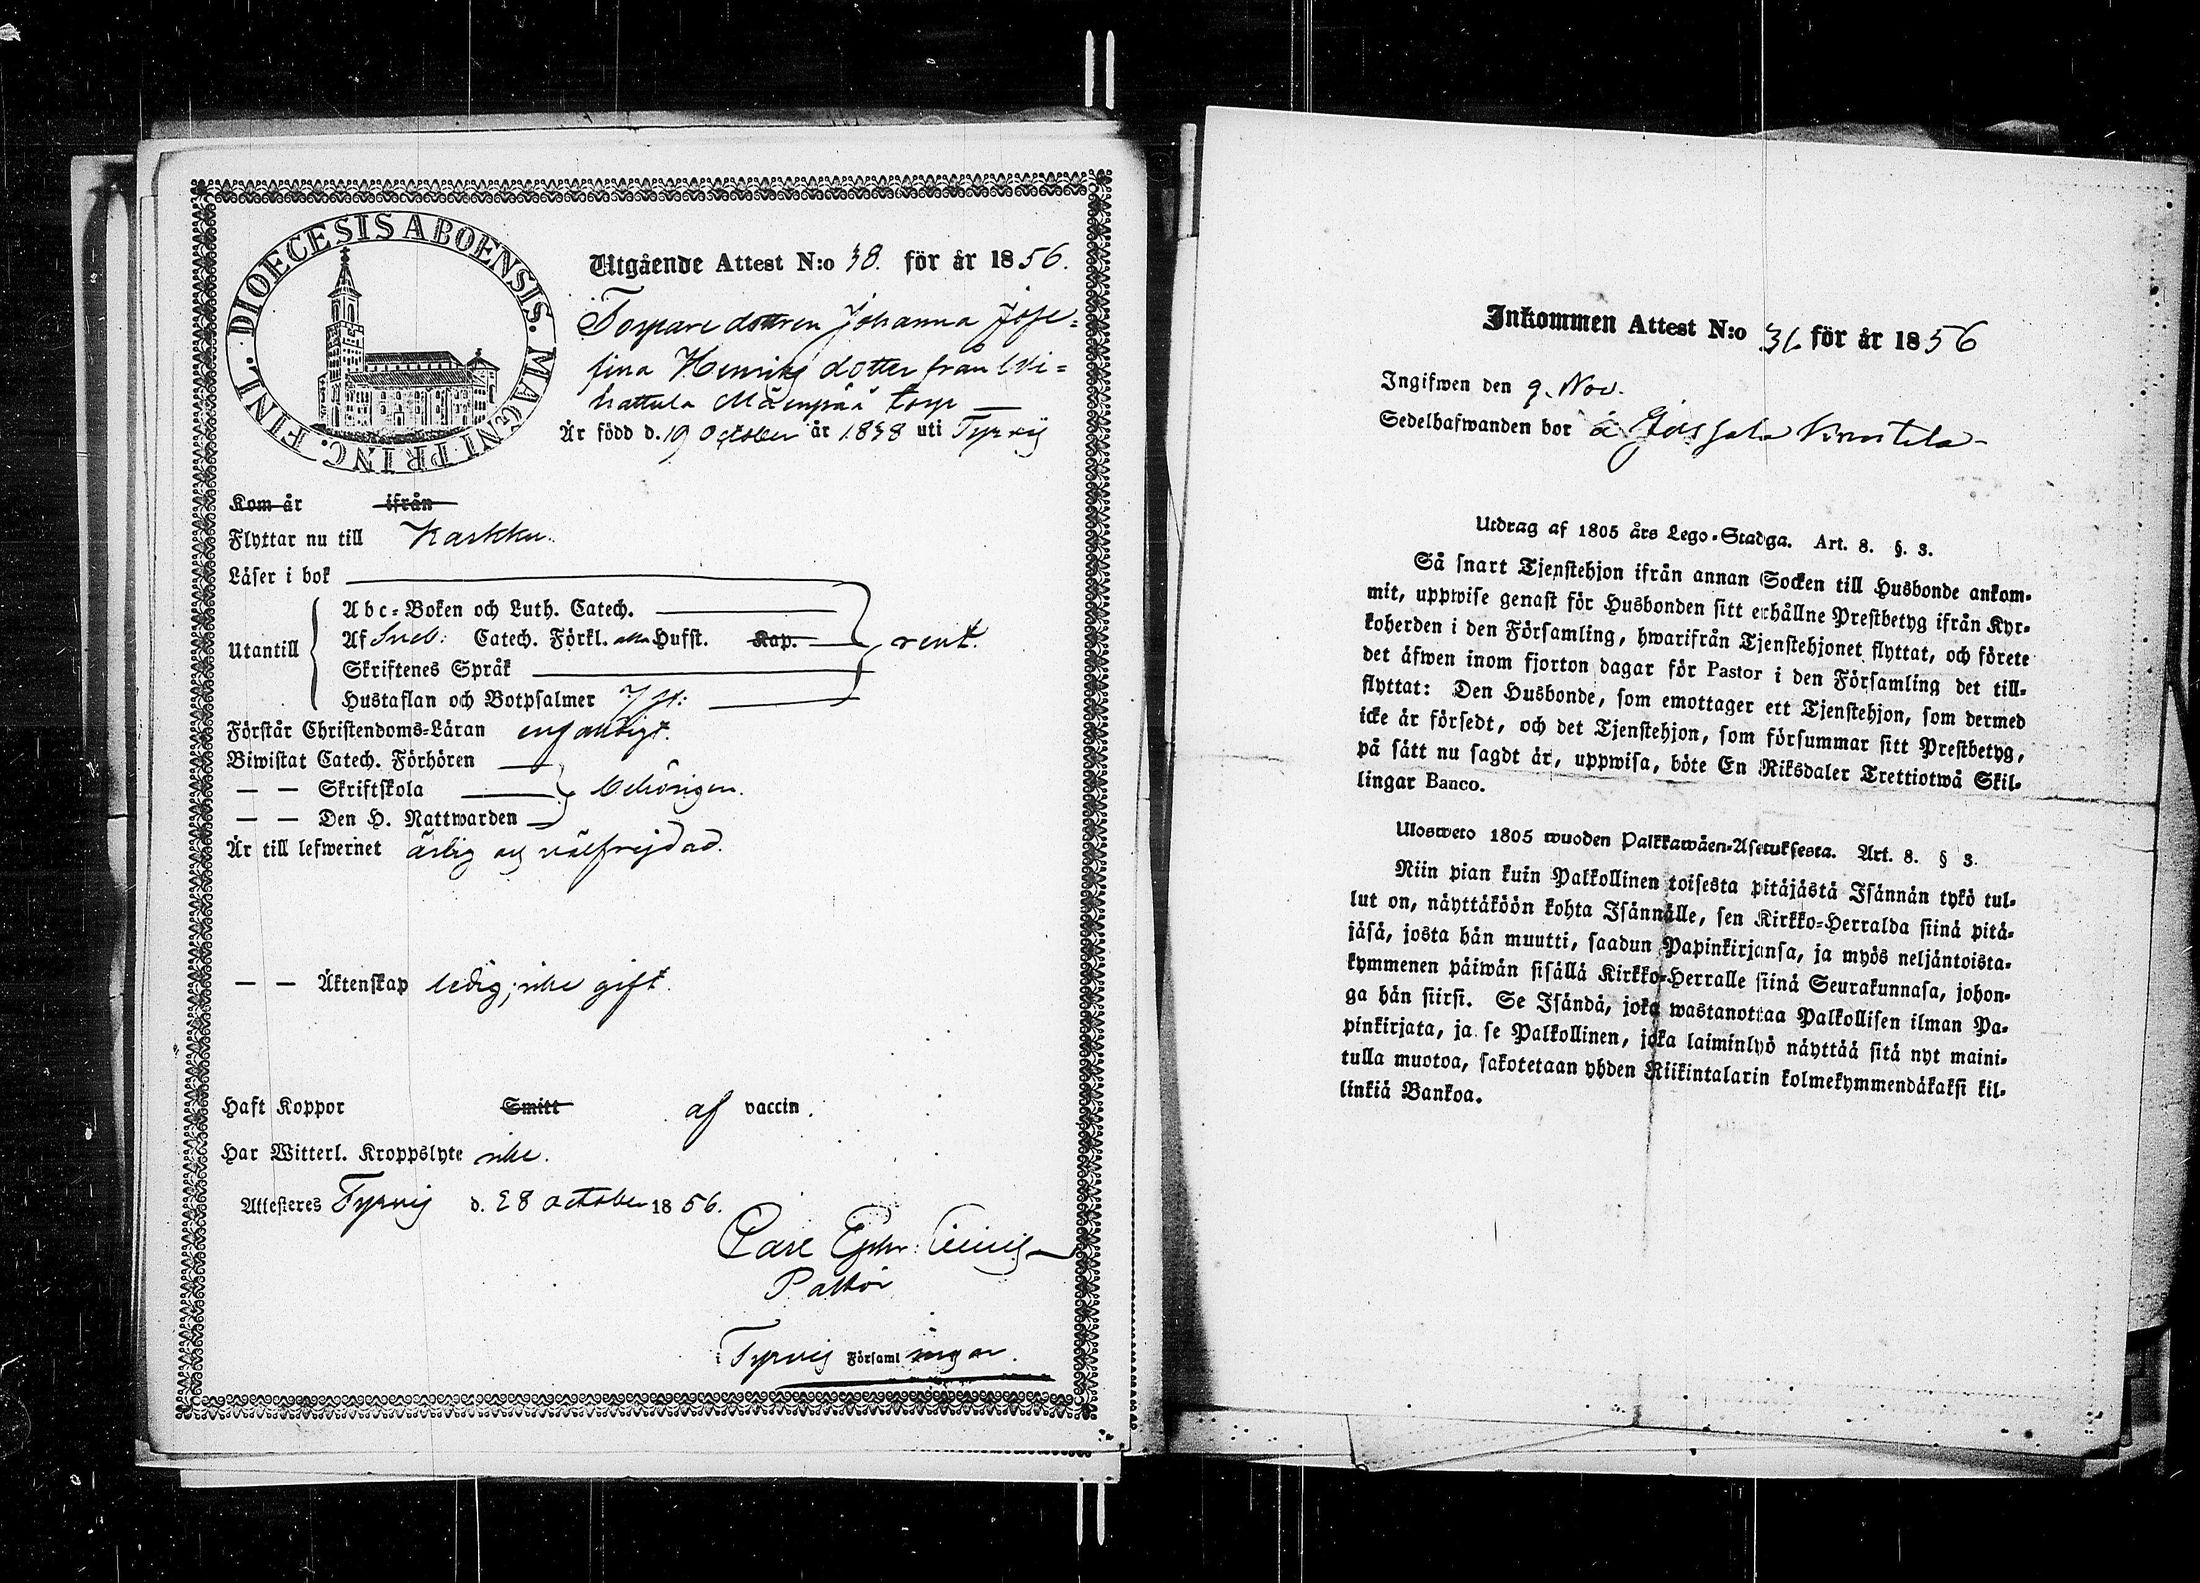 DIOECESIS ABOENSIS. MAGNI PRINC. FINL.
Utgående Attest N:o 38. för år 1856.
Torpare dottren Johanna Jose=
fina Henriksdotter från Wi=
hattula Mäenpää torp
Är född d. 19 October år 1838 uti Tyrvis
Kom år ifrån
Flyttar nu till Karkku.
Läser i bok
Utantill
Abc-Boken och Luth. Catech.
Af Sveb: Catech. Förkl. Hufst. Kap. rent.
Skriftenes Språk
Hustaflan och Botpsalmer 7 st:
Förstår Christendoms-Läran enfaldigt.
Biwistat Catech. Förhören
— — Skriftskola behörigen.
— — Den H. Nattwarden
Är till lefwernet ärlig og välfrejdad.
— — Äktenskap ledig; icke gift.
Haft Koppor Smitt af vaccin.
Har Witterl. Kroppslyte icke.
Attesteres Tyrvis d. 28 october 1856.
Carl
Pastor
i Tyrvis Församlingar.
Inkommen Attest N:o 36 för år 1856
Ingifwen den 9. Nov.
Sedelhafwanden bor å
Utdrag af 1805 års Lego-Stadga. Art. 8. §. 3.
Så snart Tjenstehjon ifrån annan Socken till Husbonde ankom-
mit, uppwise genast för Husbonden sitt erhållne Prestbetyg ifrån Kyr-
koherden i den Församling, hwarifrån Tjenstehjonet flyttat, och förete
det äfwen inom fjorton dagar för Pastor i den Församling det till-
flyttat: Den Husbonde, som emottager ett Tjenstehjon, som dermed
icke är försedt, och det Tjenstehjon, som försummar sitt Prestbetyg,
på sätt nu sagdt är, uppwisa, böte En Riksdaler Trettiotwå Skil-
lingar Banco.
Ulosweto 1805 wuoden Palkkawäen-Asetuksesta. Art. 8. § 3.
Niin pian kuin Palkollinen toisesta pitäjästä Isännän tykö tul-
lut on, näyttäköön kohta Isännälle, sen Kirkko-Herralda siinä pitä-
jäsä, josta hän muutti, saadun Papinkirjansa, ja myös neljäntoista-
kymmenen päiwän sisällä Kirkko-Herralle siinä Seurakunnasa, johon-
ga hän siirsi. Se Isändä, joka wastanottaa Palkollisen ilman Pa-
pinkirjata, ja se Palkollinen, joka laiminlyö näyttää sitä nyt maini-
tulla muotoa, sakotetaan yhden Riikintalarin kolmekymmendäkaksi kil-
linkiä Bankoa.